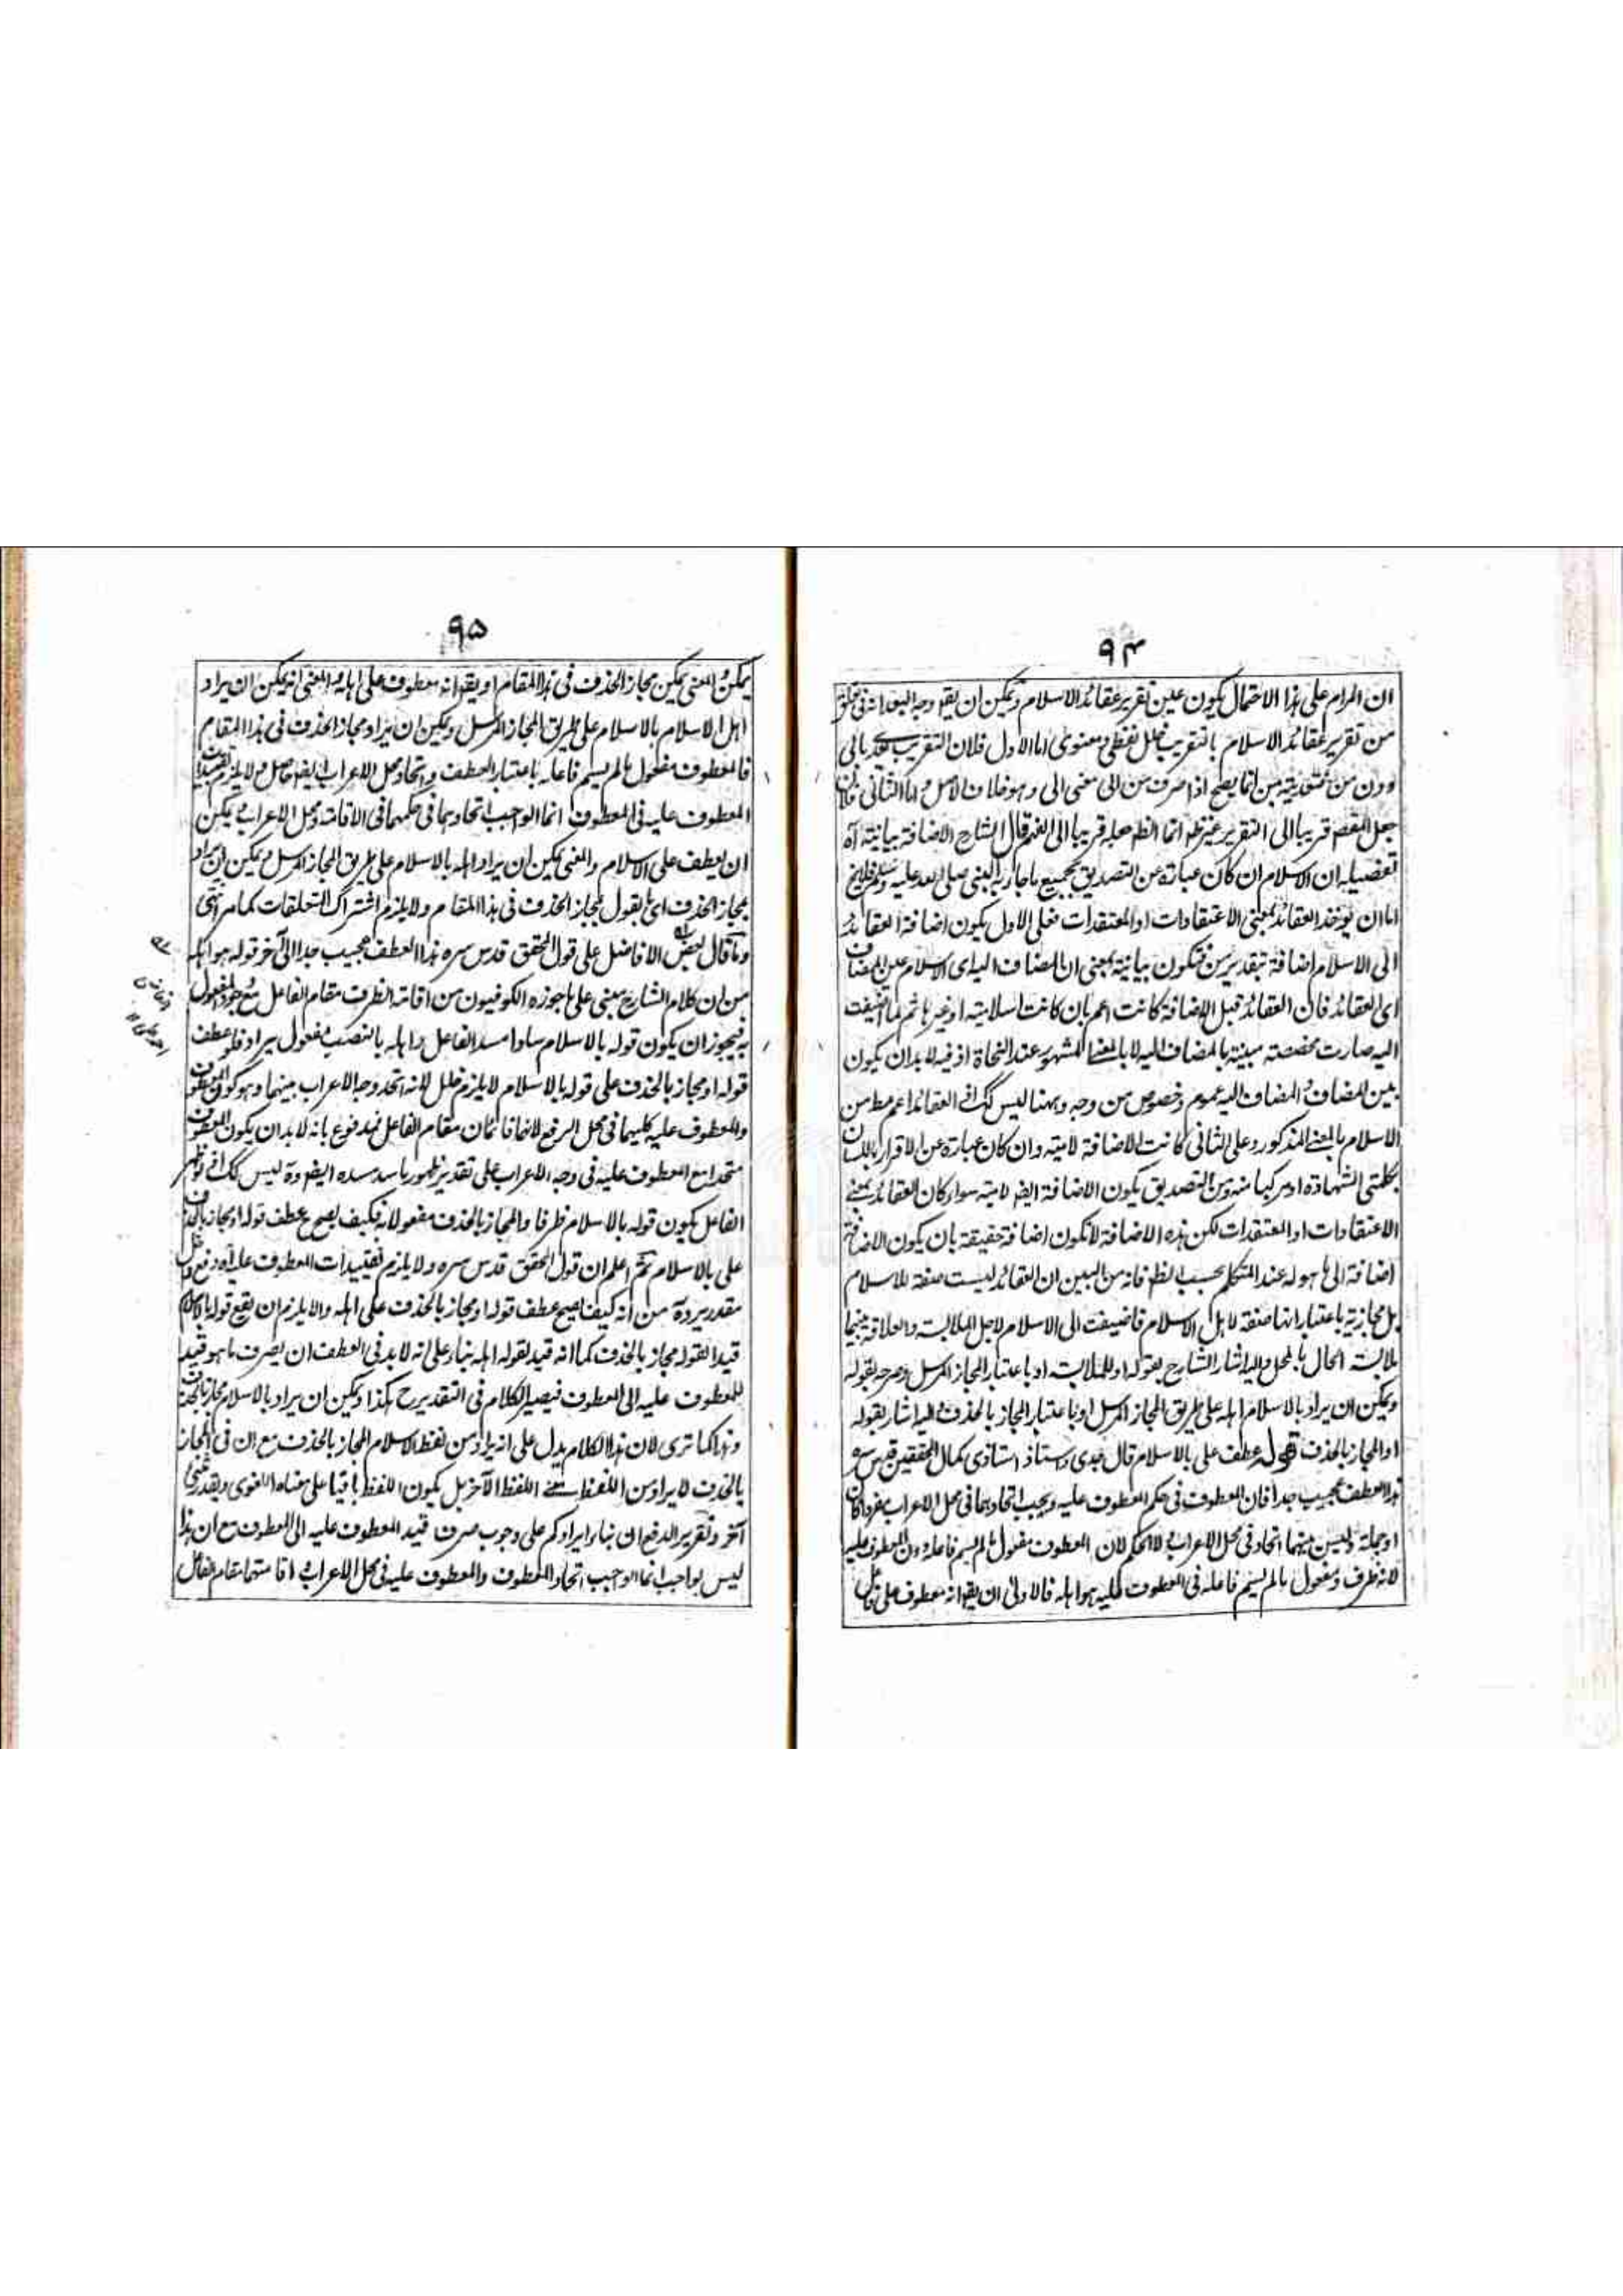 ٩٤
ان المرام على هذا الاحتمال يكون عين تقرير عقائد الاسلام ويمكن ان يقو وجه البعد انه فى
من تقرير عقائد الاسلام بالتقريب خلل لفظى ومعنوى اما الاول فلان التقريب يتعدى بالى
دون من فتعديته بمن انما يصح اذا صرف من الى معنى الى وهو خلاف الاصل واما الثانى فلان
جعل المقصد قريبا الى التقرير غير ظ انما الظ جعله قريبا الى الفهم قال الشارح الاضافة بيانية آه
تفصيله ان الاسلام ان كان عبارة عن التصديق بجميع ما جاء به النبى صلى الله عليه وسلم فلا يخ
اما ان يوخذ العقائد بمعنى الاعتقادات او المعتقدات فعلى الاول يكون اضافة العقائد
الى الاسلام اضافة بتقدير من فتكون بيانية بمعنى ان المضاف اليه اى الاسلام عين المضاف
اى العقائد فان العقائد قبل الاضافة كانت اعم بان كانت اسلامية او غيرها ثم لما اضيفت
اليه صارت مختصة مبينة بالمضاف اليه لا بالمعنى المشهور عند النحاة اذ فيه لا بد ان يكون
بين المضاف والمضاف اليه عموم وخصوص من وجه وههنا ليس كك اذ العقائد اعم مط من
الاسلام بالمعنى المذكور وعلى الثانى كانت الاضافة لامية وان كان عبارة عن الاقرار باللسان
بكلمتى الشهادة او مركبا منه ومن التصديق يكون الاضافة ايض لامية سواء كان العقائد بمعنى
الاعتقادات او المعتقدات لكن هذه الاضافة لا تكون اضافة حقيقة بان يكون الاضافة
اضافة الى ما هو له عند المتكلم بحسب الظ فانه من البين ان العقائد ليست صفة للاسلام
بل مجازية باعتبار انها صفة لاهل الاسلام فاضيفت الى الاسلام لاجل الملابسة والعلاقة بينهما
ملابسة الحال بالمحل واليه اشار الشارح بقوله او للملابسة او باعتبار المجاز المرسل وصرح بقوله
ويمكن ان يراد بالاسلام اهله على طريق المجاز المرسل او باعتبار المجاز بالحذف واليه اشار بقوله
او المجاز بالحذف قوله عطف على بالاسلام قال جدى واستاذ استاذى كمال المحققين قدس سره
هذا العطف عجيب جدا فان المعطوف فى حكم المعطوف عليه ويجب اتحادهما فى محل الاعراب مفردا كان
او جملة وليس بينهما اتحاد فى محل الاعراب ولا الحكم لان المعطوف مفعول ما لم يسم فاعله دون المعطوف عليه
لانه ظرف ومفعول ما لم يسم فاعله فى المعطوف عليه هو اهله فالاولى ان يقو انه معطوف على فاعل
٩٥
يمكن والمعنى يمكن مجاز الحذف فى هذا المقام او يقو انه معطوف على اهله والمعنى انه يمكن ان يراد
اهل الاسلام بالاسلام على طريق المجاز المرسل ويمكن ان يراد مجاز الحذف فى هذا المقام
فالمعطوف مفعول ما لم يسم فاعله باعتبار العطف واتحاد محل الاعراب ايض حاصل ولا يلزم تقييدات
المعطوف عليه فى المعطوف انما الواجب اتحادهما فى حكمهما فى الاقامة ومحل الاعراب ويمكن
ان يعطف على الاسلام والمعنى يمكن ان يراد اهله بالاسلام على طريق المجاز المرسل ويمكن ان يراد
بمجاز الحذف اى بالقول بمجاز الحذف فى هذا المقام ولا يلزم اشتراك المتعلقات كما مر انتهى
وما قال بعض الافاضل على قول المحقق قدس سره هذا العطف عجيب جدا الى آخر قوله هو اهله
من ان كلام الشارح مبنى على ما جوزه الكوفيون من اقامة الظرف مقام الفاعل مع وجود المفعول
به فيجوز ان يكون قوله بالاسلام سادا مسد الفاعل واهله بالنصب مفعول يراد فلو عطف
قوله او مجاز بالحذف على قوله بالاسلام لا يلزم خلل لانه اتحد وجه الاعراب بينهما وهو كون المعطوف
والمعطوف عليه كليهما فى محل الرفع لانهما قائمان مقام الفاعل فمدفوع بانه لا بد ان يكون المعطوف
متحدا مع المعطوف عليه فى وجه الاعراب على تقدير ظهور ما سد مسده ايض وه ليس كك اذ لو ظهر
الفاعل يكون قوله بالاسلام ظرفا والمجاز بالحذف مفعولا به فكيف يصح عطف قوله او مجاز بالحذف
على بالاسلام ثم اعلم ان قول المحقق قدس سره ولا يلزم تقييدات المعطوف عليه آه دفع دخل
مقدر يرده من انه كيف يصح عطف قوله او مجاز بالحذف على اهله والا يلزم ان يقع قوله بالاسلام
قيدا لقوله مجاز بالحذف كما انه قيد لقوله اهله بناء على انه لا بد فى العطف ان يصرف ما هو قيد
للمعطوف عليه الى المعطوف فيصير الكلام فى التقدير ح هكذا ويمكن ان يراد بالاسلام مجاز بالحذف
وهذا كما ترى لان هذا الكلام يدل على انه يراد من لفظ الاسلام المجاز بالحذف مع ان فى المجاز
بالحذف لا يراد من اللفظ معنى اللفظ الآخر بل يكون اللفظ باقيا على معناه اللغوى ويقدر معنى
آخر وتقرير الدفع ان بناء ايرادكم على وجوب صرف قيد المعطوف عليه الى المعطوف مع ان هذا
ليس بواجب انما الواجب اتحاد المعطوف والمعطوف عليه فى محل الاعراب واقامتهما مقام الفاعل